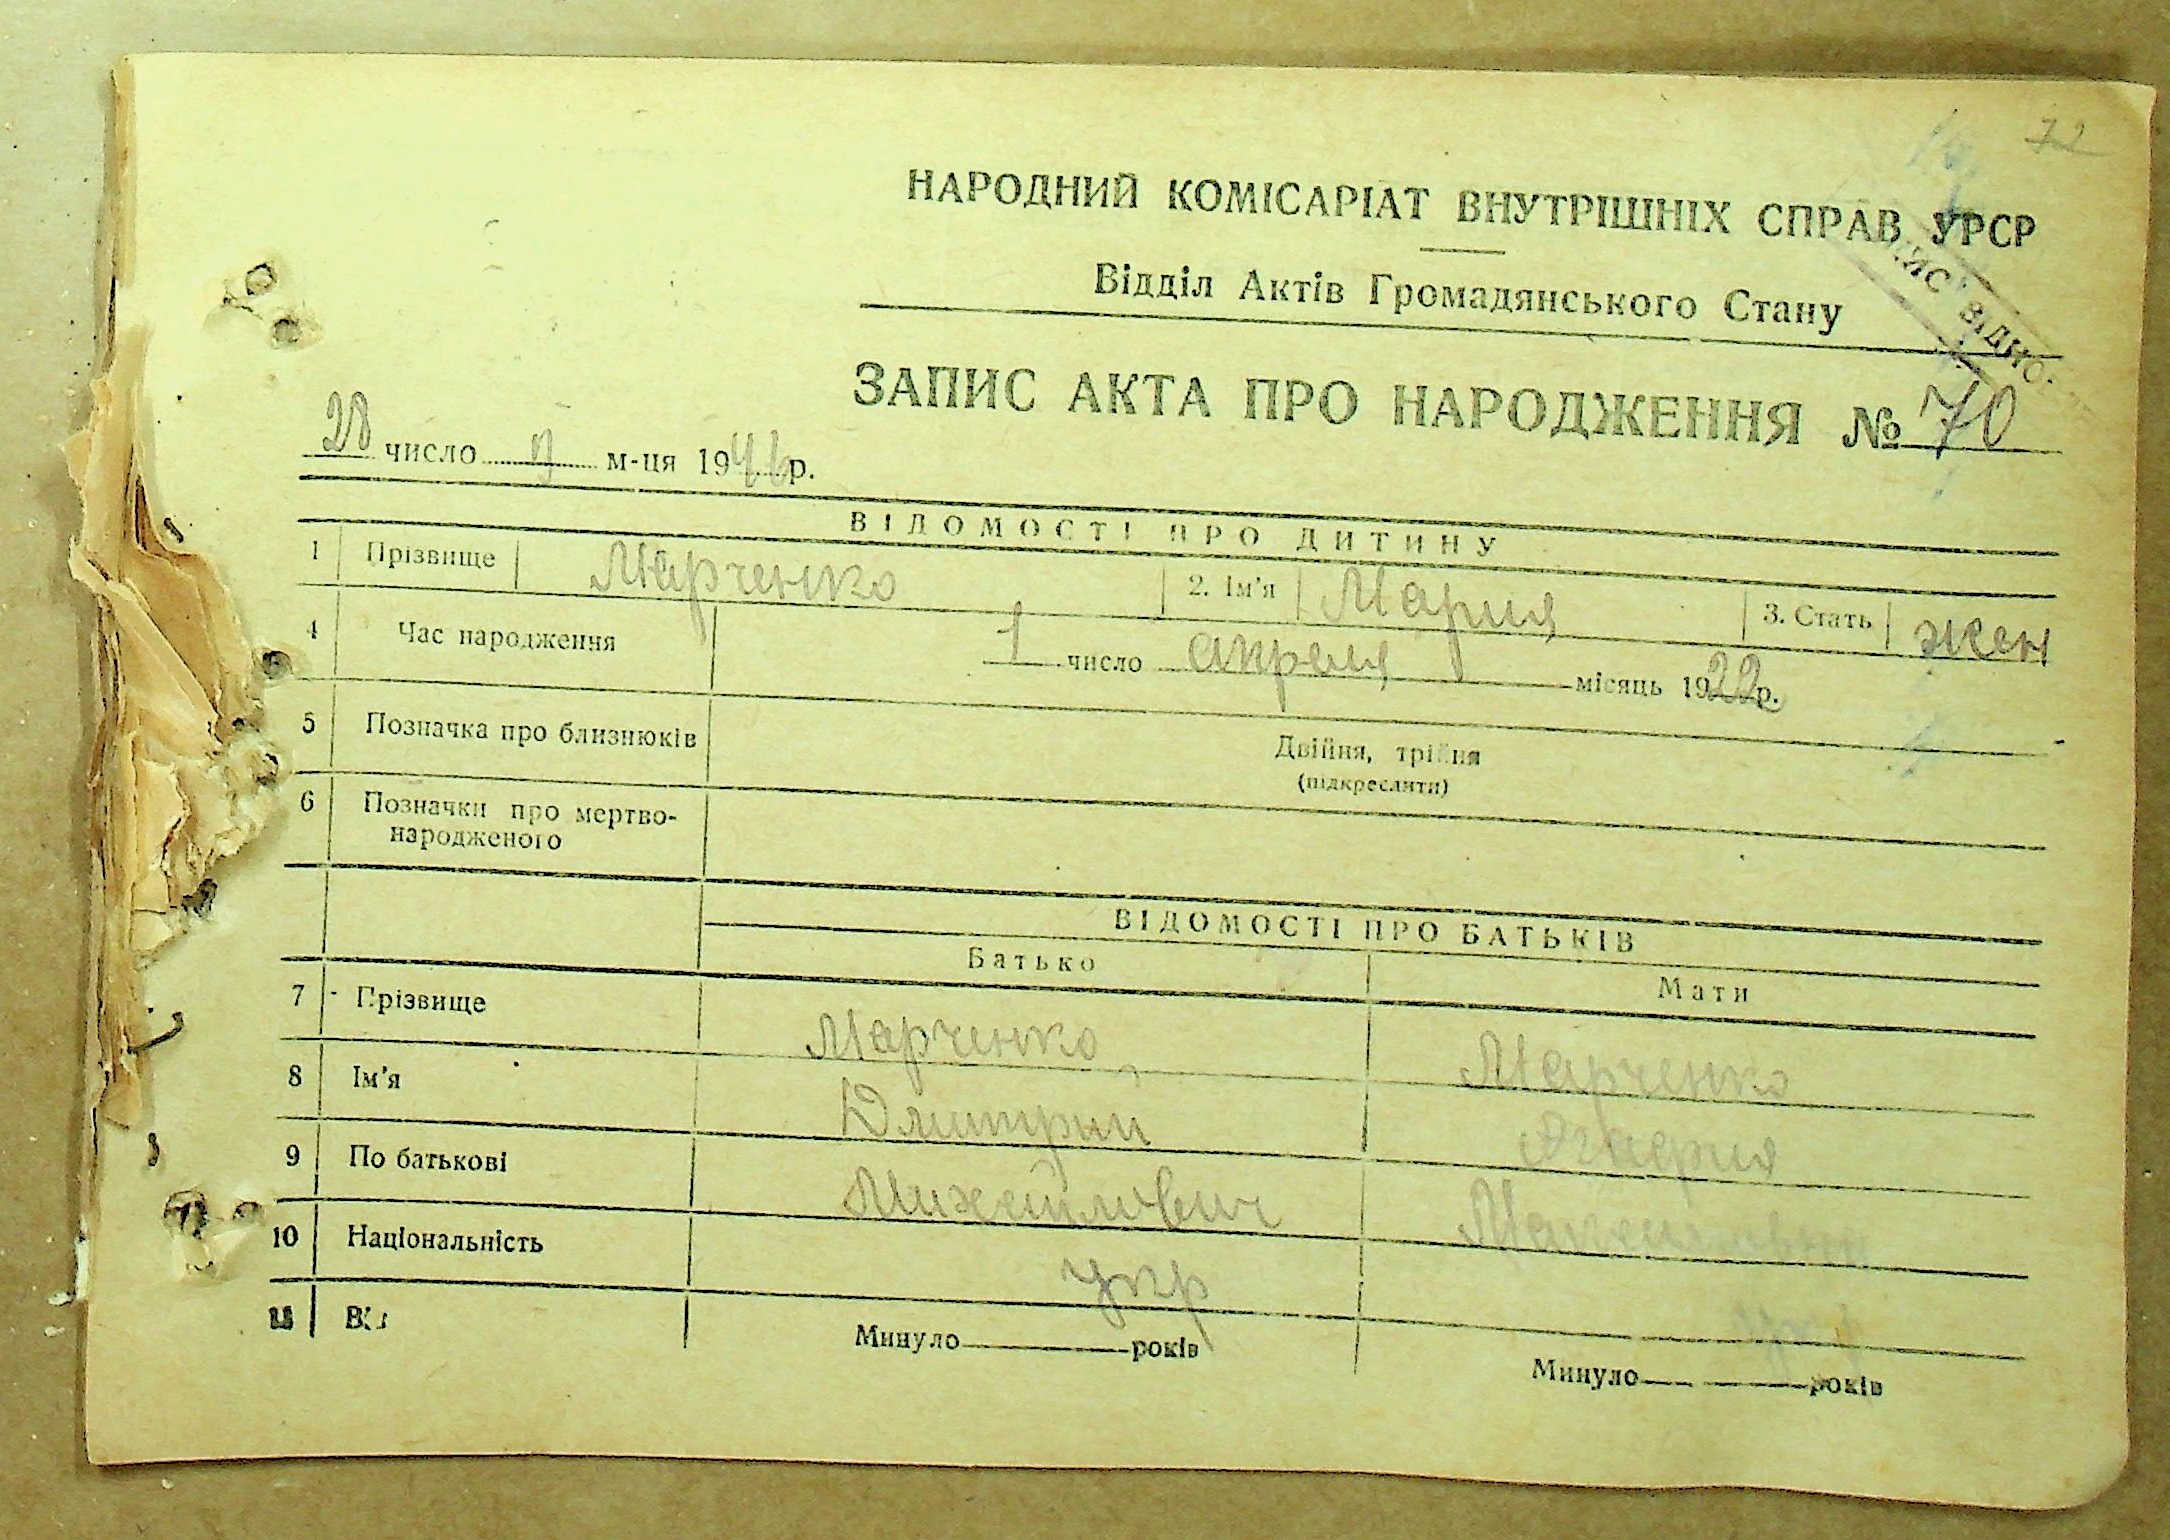 72
НАРОДНИЙ КОМІСАРІАТ ВНУТРІШНІХ СПРАВ УРСР
Відділ Актів Громадянського Стану
ЗАПИС АКТА ПРО НАРОДЖЕННЯ № 70
28 число 9 м-ця 1946 р.
ВІДОМОСТІ ПРО ДИТИНУ
1 Прізвище Марченко 2. Ім'я Мария 3. Стать жен
4 Час народження 1 число апреля місяць 1922 р.
5 Позначка про близнюків Двійня, трійня
(підкреслити)
6 Позначки про мертво-
народженого
ВІДОМОСТІ ПРО БАТЬКІВ
Батько Мати
7 Прізвище Марченко Марченко
8 Ім'я Дмитрий
9 По батькові Михайлович
10 Національність укр
11 Минуло років Минуло років